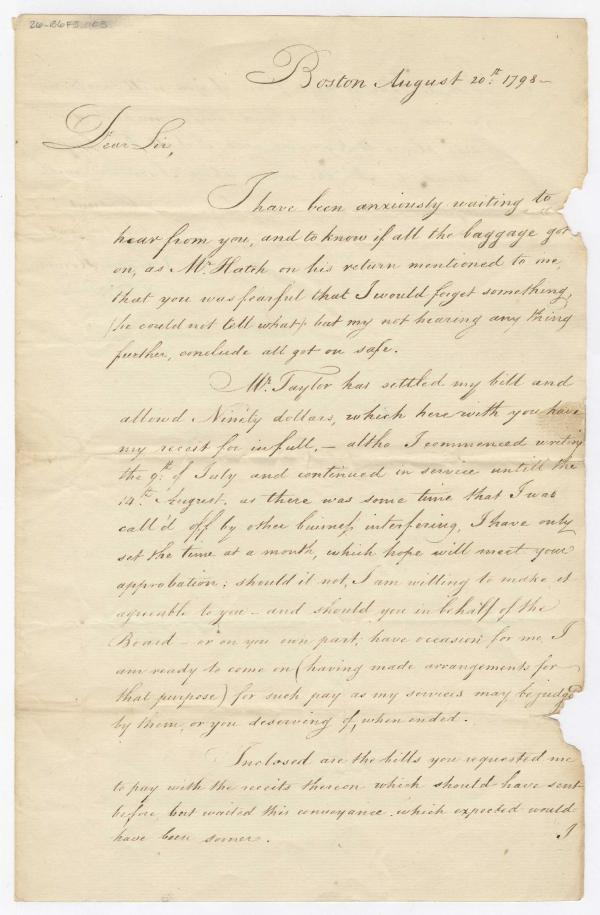 Boston August 20th. 1798 —
Dear Sir,
I have been anxiously waiting to
hear from you, and to know if all the baggage got
on, as Mr. Hatch on his return mentioned to me
that you was fearful that I would forget something,
(he could not tell what) but my not hearing any thing
further, conclude all got on safe.
Mr. Taylor has settled my bill and
allowd Ninety dollars, which here with you have
my receit for in full, — altho I commenced writing
the 9th. of July and continued in service untill the
14th. August, as there was some time that I was
call'd off by other business interfering, I have only
set the time at a month, which hope will meet your
approbation; should it not, I am willing to make it
agreable to you — and should you in behalf of the
Board — or on you own part, have occasion for me, I
am ready to come on (having made arrangements for
that purpose) for such pay as my services may be judgd
by them, or you deserving of, when ended.
Inclosed are the bills you requested me
to pay with the receits thereon which should have sent
before, but waited this conveyance which expected would
have been sooner.
I